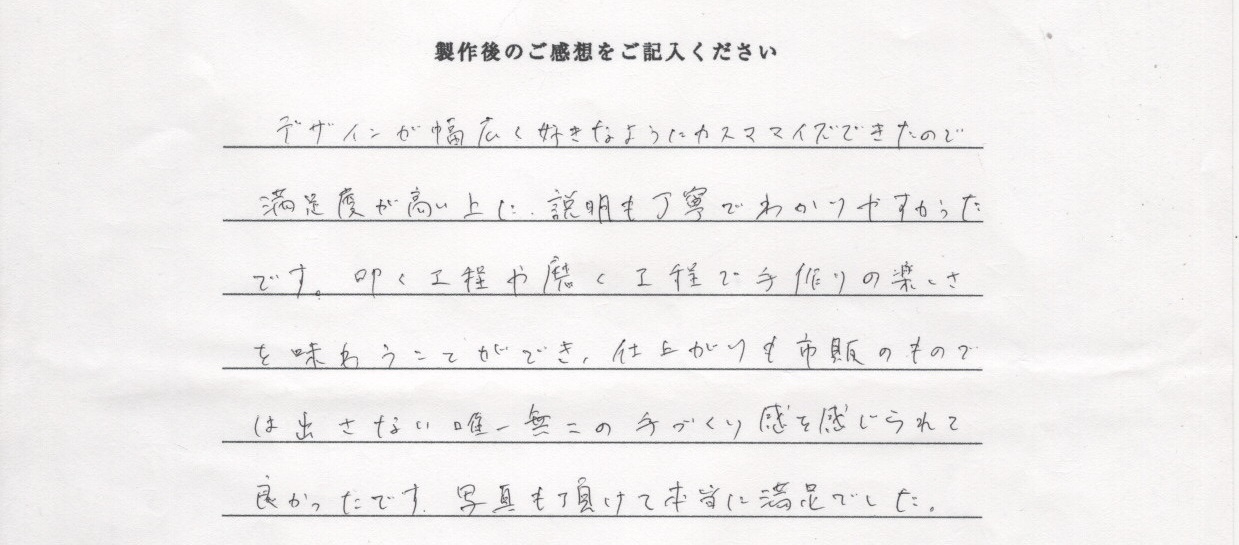 製作後のご感想をご記入ください
デザインが幅広く好きなようにカスママイズできたので
満足度が高い上に、説明も丁寧でわかりやすかった
です。叩く工程や磨く工程で手作りの楽しさ
を味わうことができ、仕上がりも市販のもので
は出さない唯一無二の手づくり感を感じられて
良かったです。写真も頂けて本当に満足でした。